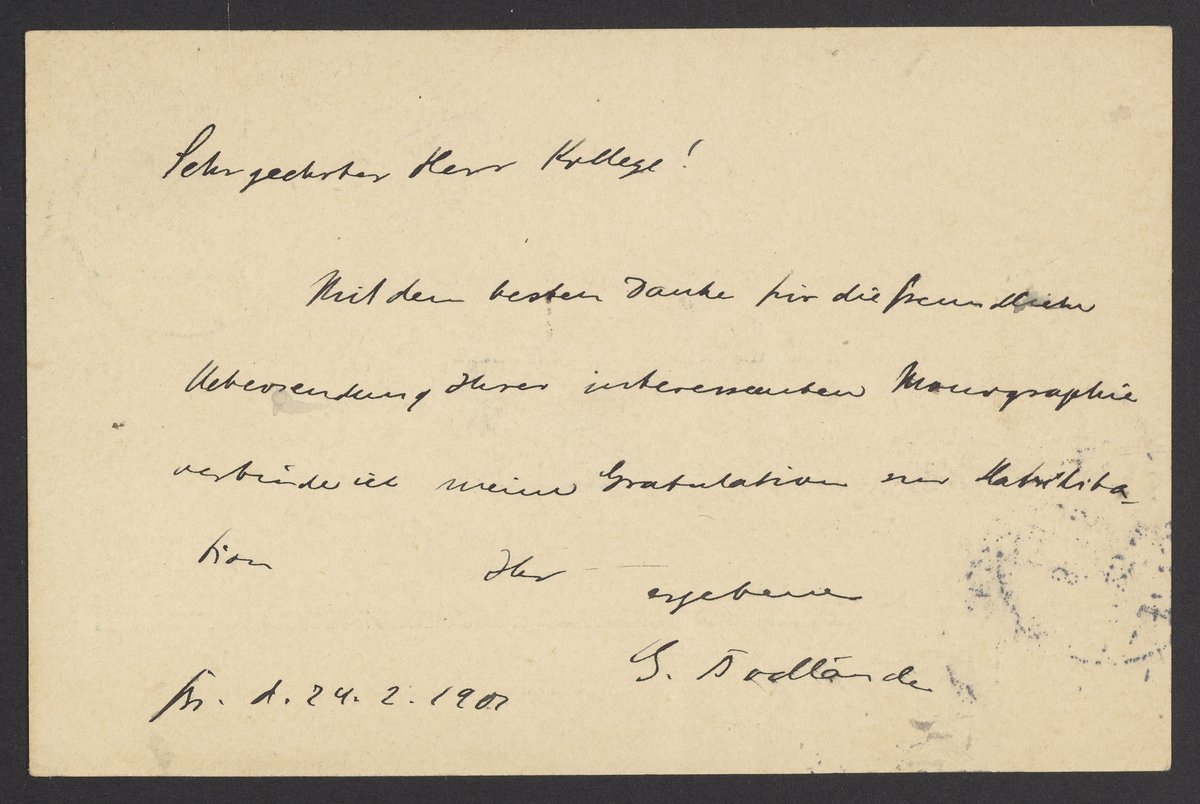 Sehr geehrter Herr Kollege!
Mit dem besten Danke für die freundliche
Uebersendung Ihrer interessanten Monographie
verbinde ich meine Gratulation zur Habilita-
tion Ihr
ergebener
G. Bodländer
d. 24. 2. 1901